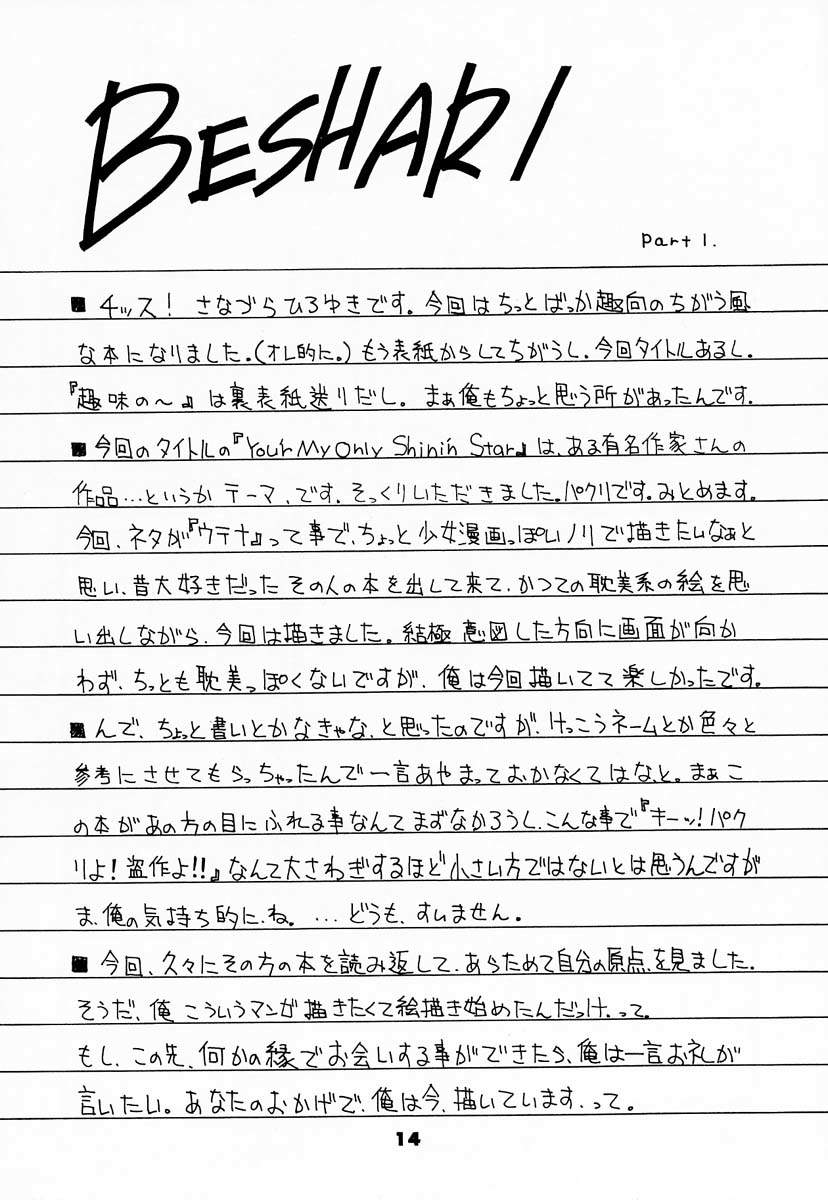 BESHARI
Part 1.
■ チッス! さなづらひろゆきです。今回はちっとばっか趣向のちがう風
な本になりました。(オレ的に。)もう表紙からしてちがうし、今回タイトルあるし。
『趣味の〜』は裏表紙送りだし。まぁ俺もちょっと思う所があったんです。
■ 今回のタイトルの『You'r My Only Shinin' Star』は、ある有名作家さんの
作品…というかテーマ、です。そっくりいただきました。パクリです。みとめます。
今回、ネタが『ウテナ』って事で、ちょっと少女漫画っぽいノリで描きたいなぁと
思い、昔大好きだったその人の本を出して来て、かつての耽美系の絵を思
い出しながら、今回は描きました。結極意図した方向に画面が向か
わず、ちっとも耽美っぽくないですが、俺は今回描いてて楽しかったです。
■ んで、ちょっと書いとかなきゃな、と思ったのですが、けっこうネームとか色々と
参考にさせてもらっちゃったんで一言あやまっておかなくてはなと。まぁこ
の本があの方の目にふれる事なんてまずなかろうし、こんな事で『キーッ!パク
リよ!盗作よ!!』なんて大さわぎするほど小さい方ではないとは思うんですが
ま、俺の気持ち的に、ね。…どうも、すいません。
■ 今回、久々にその方の本を読み返して、あらためて自分の原点を見ました。
そうだ、俺こういうマンガ描きたくて絵描き始めたんだっけ、って。
もし、この先、何かの縁でお会いする事ができたら、俺は一言お礼が
言いたい。あなたのおかげで、俺は今、描いています、って。
14